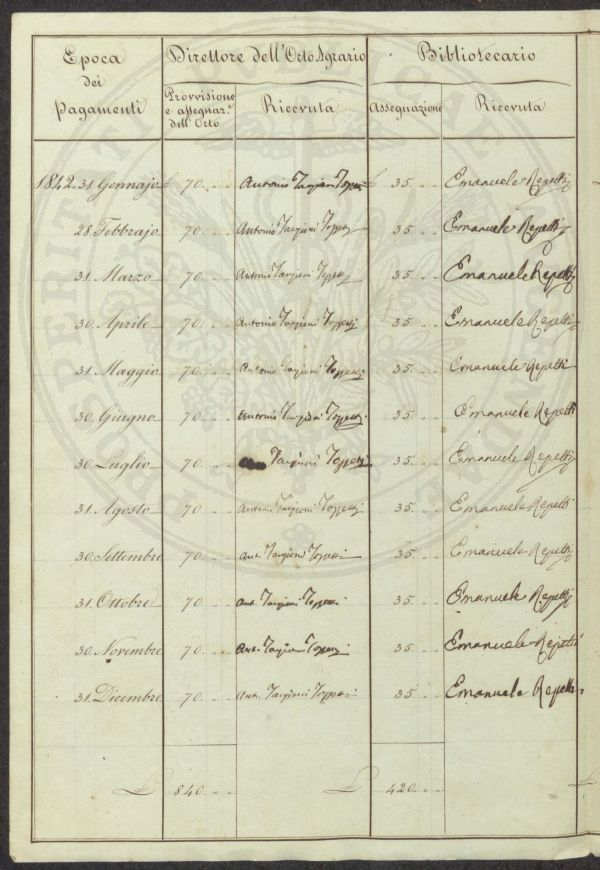 Epoca dei Pagamenti | Direttore dell'Orto Agrario | Bibliotecario
Provvisione e assegnaz.e dell'Orto | Ricevuta | Assegnazione | Ricevuta
1842. 31. Gennajo £ 70. " " Antonio Targioni Tozzetti £ 35. " " Emanuele Repetti
28. Febbrajo 70. " " Antonio Targioni Tozzetti 35. " " Emanuele Repetti
31. Marzo 70. " " Antonio Targioni Tozzetti 35. " " Emanuele Repetti
30. Aprile 70. " " Antonio Targioni Tozzetti 35. " " Emanuele Repetti
31. Maggio 70. " " Antonio Targioni Tozzetti 35. " " Emanuele Repetti
30. Giugno 70. " " Antonio Targioni Tozzetti 35. " " Emanuele Repetti
30. Luglio 70. " " Targioni Tozzetti 35. " " Emanuele Repetti
31. Agosto 70. " " Anton. Targioni Tozzetti 35. " " Emanuele Repetti
30. Settembre 70. " " Ant. Targioni Tozzetti 35. " " Emanuele Repetti
31. Ottobre 70. " " Ant. Targioni Tozzetti 35. " " Emanuele Repetti
30. Novembre 70. " " Ant. Targioni Tozzetti 35. " " Emanuele Repetti
31. Dicembre 70. " " Ant. Targioni Tozzetti 35. " " Emanuele Repetti
£ 840. " " £ 420. " "
PROSPERITATI PUBLICAE